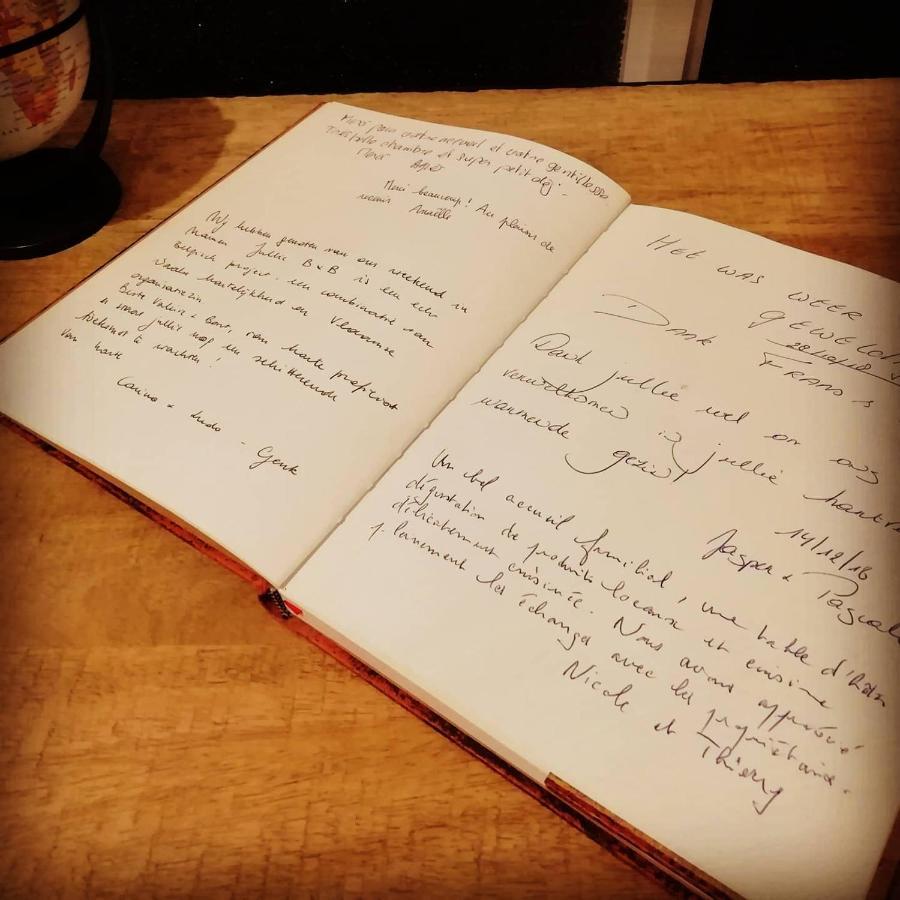 Merci pour votre accueil et votre gentillesse
Très belle chambre et super petit dej.
Merci
Merci beaucoup! Au plaisir de
revenir Anaëlle
Wij hebben genoten van ons weekend in
Namen. Jullie B&B is een echt
Belgisch project. een combinatie van
Waalse hartelijkheid en Vlaamse
organisatiezin
Beste Valerie & Bart, van harte proficiat
& moge jullie nog een schitterende
toekomst te wachten!
Van harte
Carina & Ludo - Genk
HET WAS WEER
GEWELDIG
28/10/18
DANK FRANS
Dank jullie wel om ons
verwelkomen in jullie
warmende gezin!
14/12/18
Jasper & Pascale
Un bel accueil familial, une table d'hôtes
dégustation de produits locaux et cuisine
délicatement cuisinée. Nous avons apprécié
pleinement les échanges avec les propriétaires.
Nicole et Thierry